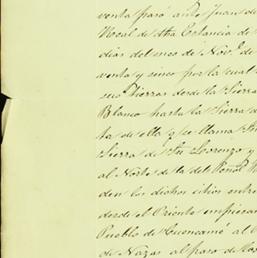 venta pasó ante Juan de
Nocal de dha Estancia de
dias del mes de Nov.e de
venta y cinco por la cual
sus tierras desde la Sierra
Blanco harta la Sierra de
ta de ella q.e se llama
Sierra de Sn Lorenzo y
al Norte de la del Peñol
den los dichos citios entre
desde el Oriente empiezan
Pueblo de Cuencamé al
de Nazas al paso de